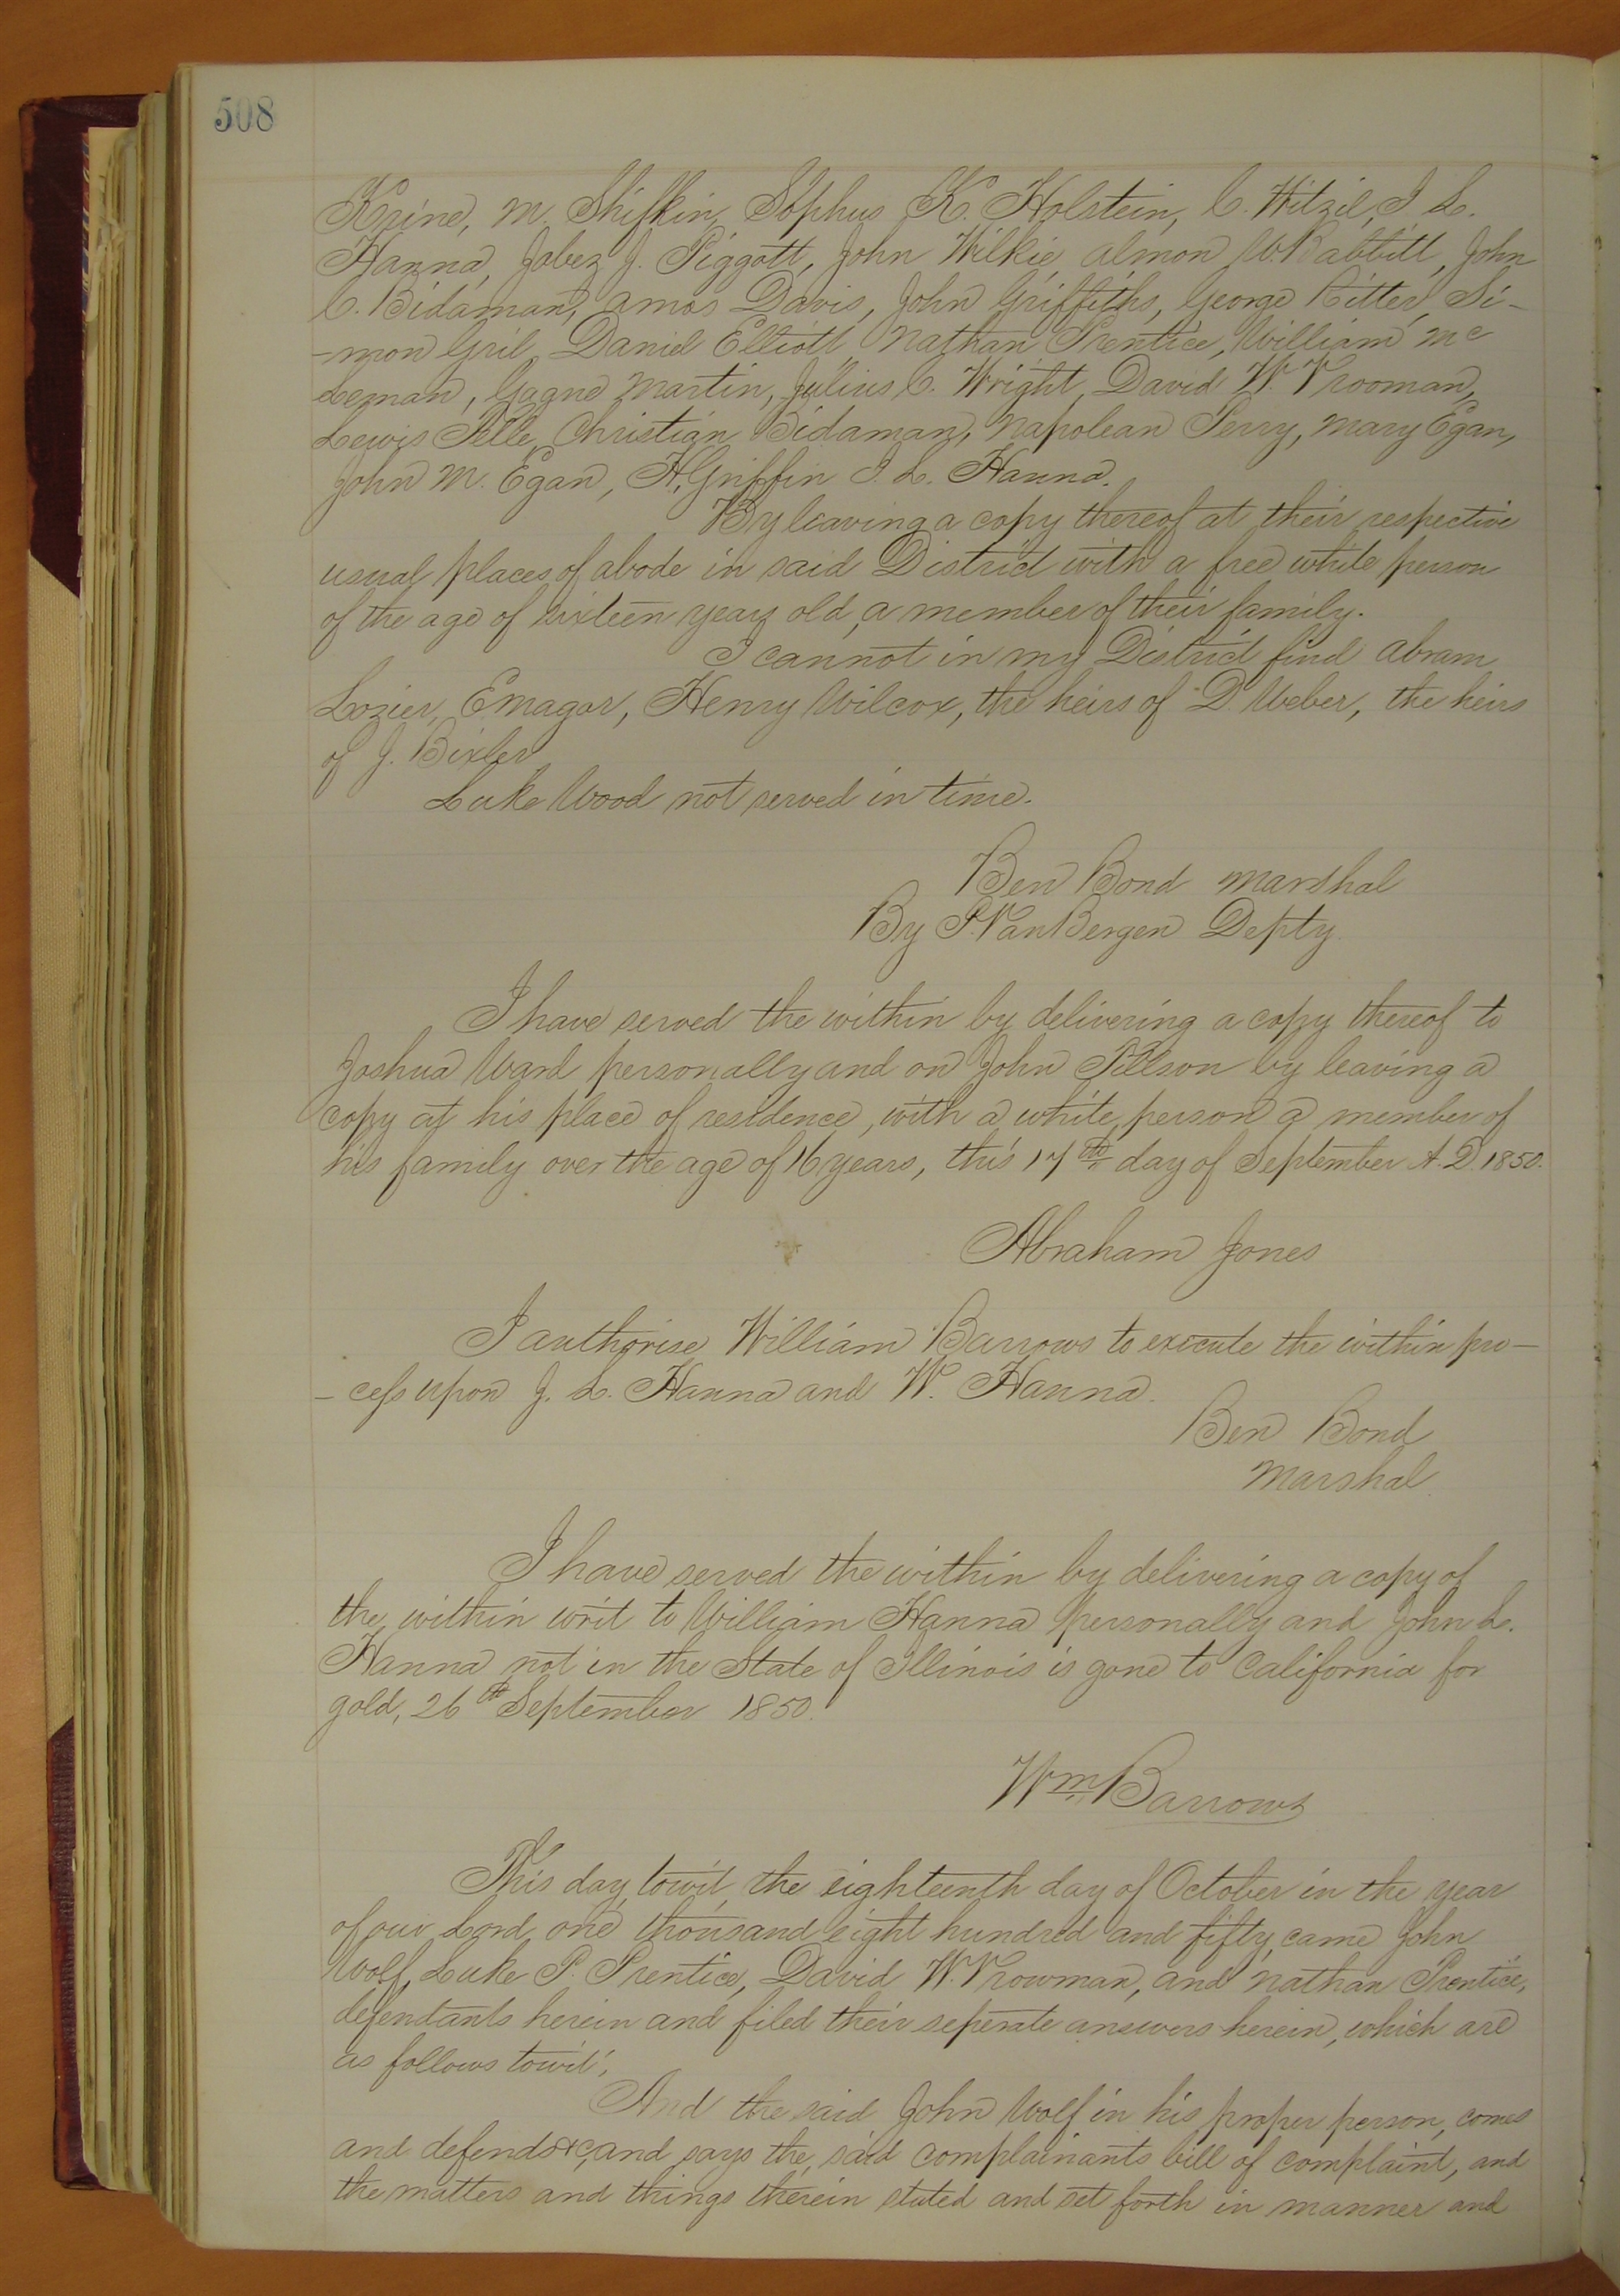 508
Krine, M. Shifkin, Sophus K. Holstein, C. Witzil, I L.
Hanna, Jabez J. Piggott, John Wilkie, Almon W. Babbitt, John
C. Bidaman, Amos Davis, John Griffiths, George Ritter, Si-
-mon Gril, Daniel Elliott, Nathan Prentice, William Mc
Leman, Gagne Martin, Julius C. Wright, David W. Vrooman,
Lewis Telle, Christian Bidaman, Napolean Perry, Mary Egan,
John M. Egan, H. Griffin I. L. Hanna.
By leaving a copy thereof at their respective
usual places of abode in said District with a free white person
of the age of sixteen years old, a member of their family.
I cannot in my District find Abram
Lozier, Emagar, Henry Wilcox, the heirs of D. Weber, the heirs
of J. Bixler
Luke Wood not served in time.
Ben Bond Marshal
By P. Van Bergen Depty.
I have served the within by delivering a copy thereof to
Joshua Ward personally and on John Tillson by leaving a
copy at his place of residence, with a white person a member of
his family over the age of 16 years, this 17th day of September A.D. 1850.
Abraham Jones
I authorise William Barrows to execute the within pro-
-cess upon J. L. Hanna and W. Hanna.
Ben Bond
Marshal.
I have served the within by delivering a copy of
the within writ to William Hanna personally and John L.
Hanna not in the State of Illinois is gone to California for
gold, 26th September 1850.
Wm Barrows
This day, towit, the eighteenth day of October in the year
of our Lord one thousand eight hundred and fifty, came John
Wolf, Luke P. Prentice, David W. Vrowman, and Nathan Prentice,
defendants herein and filed their seperate answers herein, which are
as follows towit;
And the said John Wolf in his proper person, comes
and defends &c, and says the said complainants bill of complaint, and
the matters and things therein stated and set forth in manner and